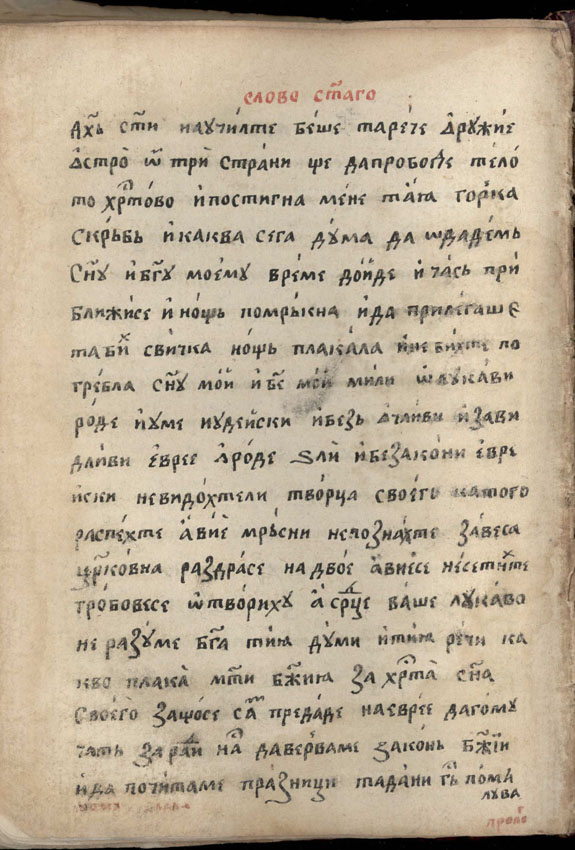 слово ст҃аго
Ахь ст҃и научилте беше таречѐ дружїе
Астро̀ ѿ трѝ страни ще дапрободе тѐло
то хр҃тово ѝпостигна мене таѝа горька
скрьбь ѝкаква сега дума да ѡдадемь
Сн҃у ѝбг҃у моему време дойде ѝчась при
ближисе ѝнощь помрькна ѝда прилегаше
таби свичка нощь плакала по
гребла сн҃у мой ѝбже мой мили ѡлукави
роде ѝуме иудейски ѝбезь ѝзави
дливи еврее ароде ѕли ѝбезакони евре
иски невидохтели творца своего катого
распехте авие мрьсни непознахте завеса
цр҃ковна раздрасе надвое авиесе несетихте
гробовесе ѿвориху а срдце ваше лукаво
не разуме бг҃а тиѝа думи ѝтиѝа речи ка
кво плака мт҃и бж҃иѝа за хр҃та сн҃а
Своего защосе са̄ предаде наеврее дагому
чать заради на̄ даверваме законь бж҃їй
ѝда почитаме празници тадани гь поми
лува